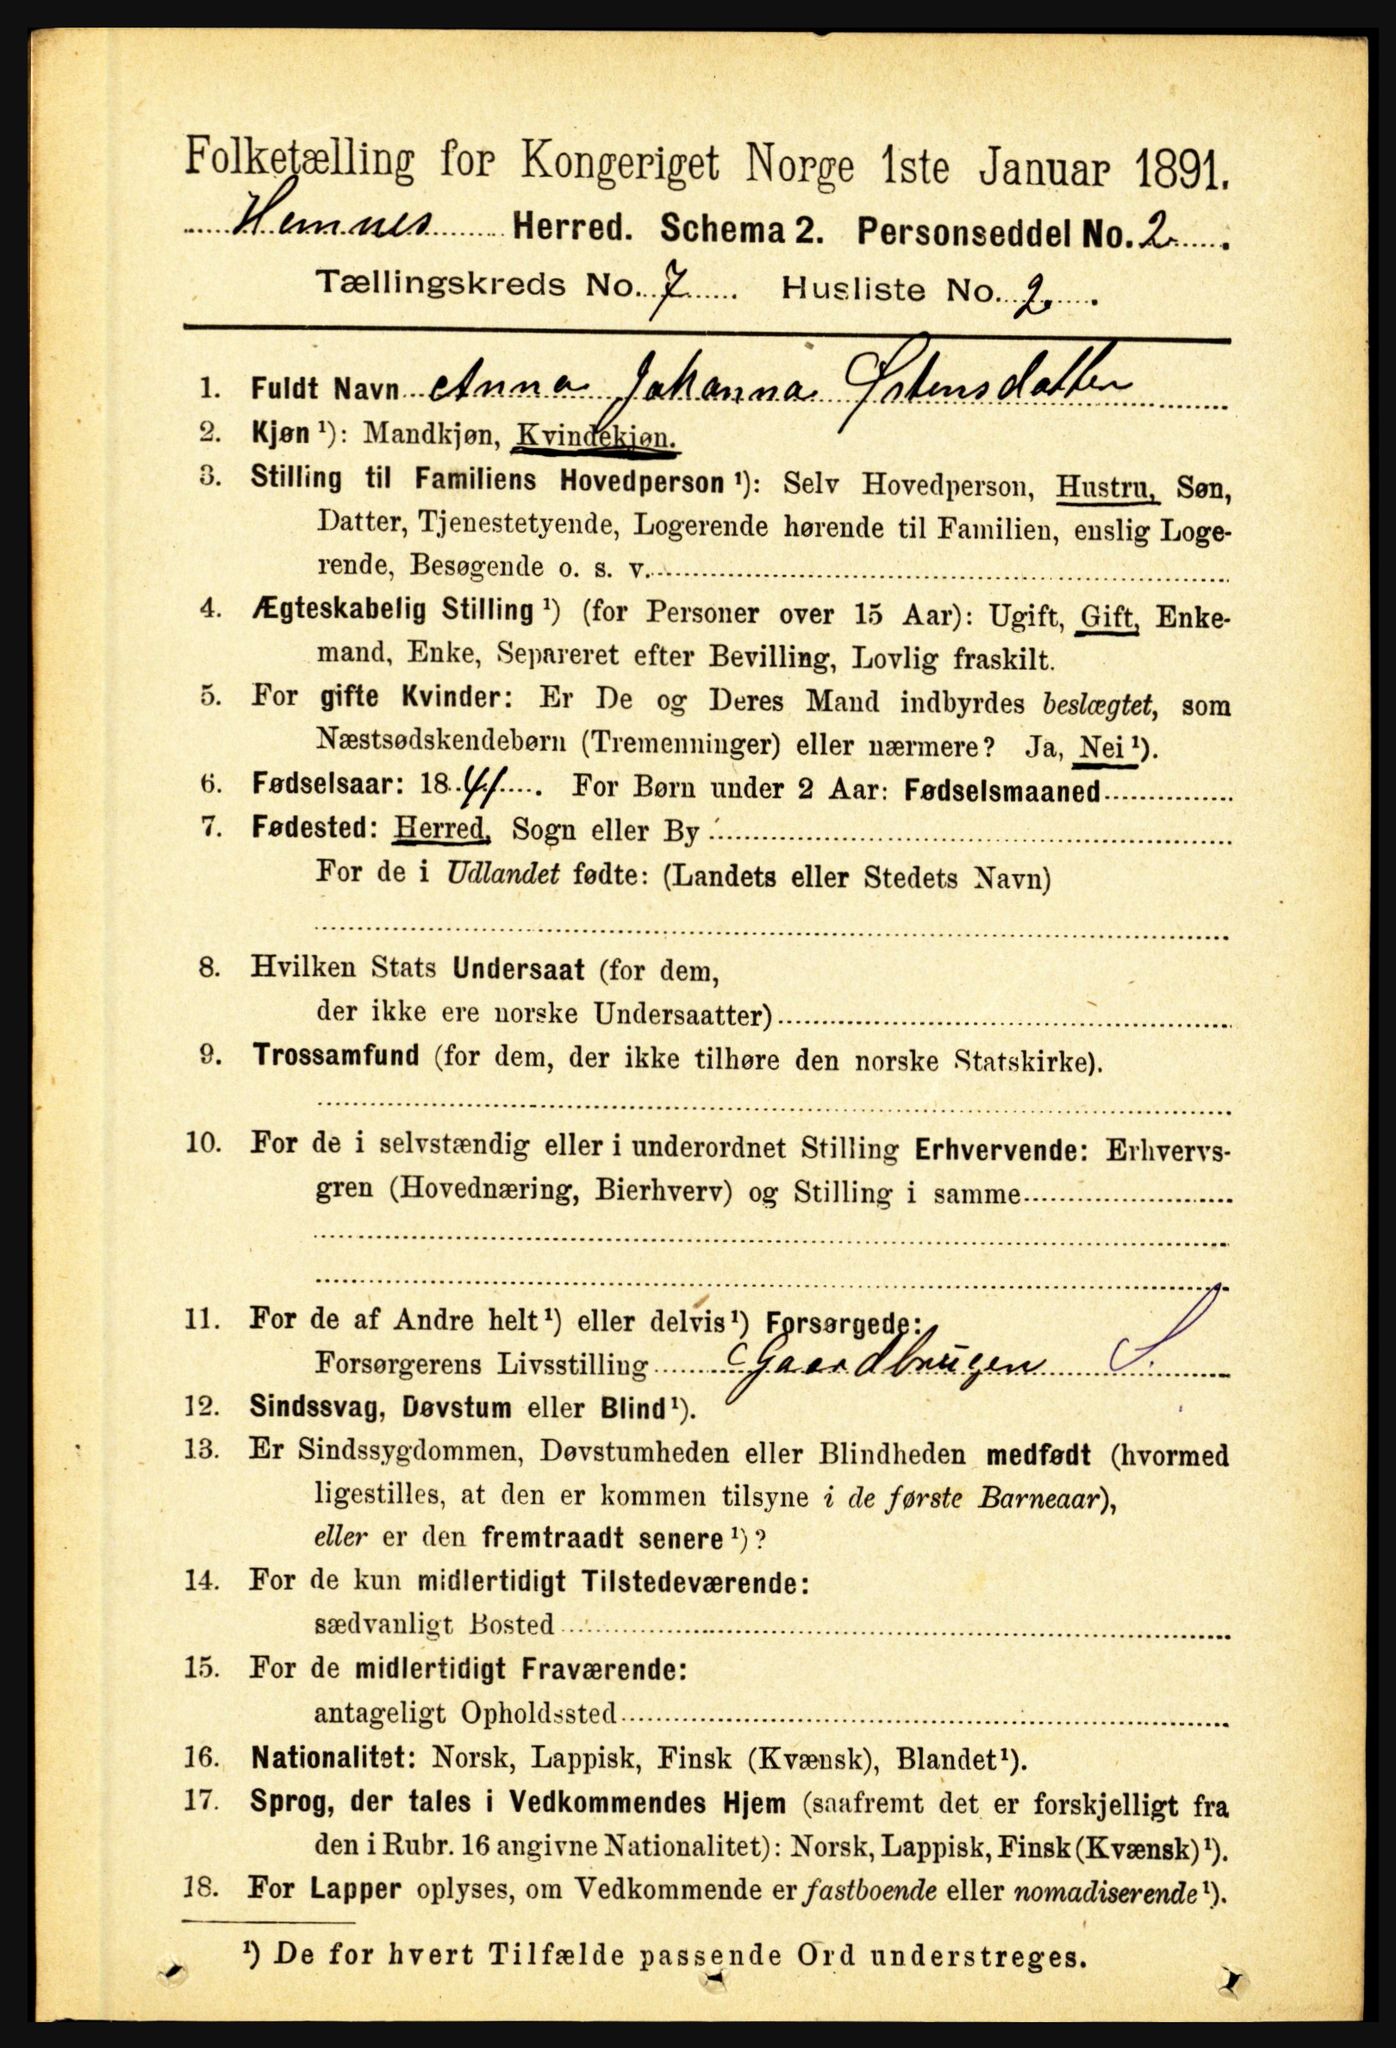 Folketælling for Kongeriget Norge 1ste Januar 1891.
Hemnes Herred. Schema 2. Personseddel No. 2.
Tællingskreds No. 7. Husliste No. 2.
1. Fuldt Navn Anna Johanna Østensdatter
2. Kjøn ¹): Mandkjøn, Kvindekjøn.
3. Stilling til Familiens Hovedperson ¹): Selv Hovedperson, Hustru, Søn,
Datter, Tjenestetyende, Logerende hørende til Familien, enslig Loge-
rende, Besøgende o. s. v.
4. Ægteskabelig Stilling ¹) (for Personer over 15 Aar): Ugift, Gift, Enke-
mand, Enke, Separeret efter Bevilling, Lovlig fraskilt.
5. For gifte Kvinder: Er De og Deres Mand indbyrdes beslægtet, som
Næstsødskendebørn (Tremenninger) eller nærmere? Ja, Nei ¹).
6. Fødselsaar: 1844. For Børn under 2 Aar: Fødselsmaaned
7. Fødested: Herred, Sogn eller By
For de i Udlandet fødte: (Landets eller Stedets Navn)
8. Hvilken Stats Undersaat (for dem,
der ikke ere norske Undersaatter)
9. Trossamfund (for dem, der ikke tilhøre den norske Statskirke).
10. For de i selvstændig eller i underordnet Stilling Erhvervende: Erhvervs-
gren (Hovednæring, Bierhverv) og Stilling i samme
11. For de af Andre helt ¹) eller delvis ¹) Forsørgede:
Forsørgerens Livsstilling Gaardbrugen S.
12. Sindssvag, Døvstum eller Blind ¹).
13. Er Sindssygdommen, Døvstumheden eller Blindheden medfødt (hvormed
ligestilles, at den er kommen tilsyne i de første Barneaar),
eller er den fremtraadt senere ¹)?
14. For de kun midlertidigt Tilstedeværende:
sædvanligt Bosted
15. For de midlertidigt Fraværende:
antageligt Opholdssted
16. Nationalitet: Norsk, Lappisk, Finsk (Kvænsk), Blandet ¹).
17. Sprog, der tales i Vedkommendes Hjem (saafremt det er forskjelligt fra
den i Rubr. 16 angivne Nationalitet): Norsk, Lappisk, Finsk (Kvænsk) ¹).
18. For Lapper oplyses, om Vedkommende er fastboende eller nomadiserende ¹).
¹) De for hvert Tilfælde passende Ord understreges.